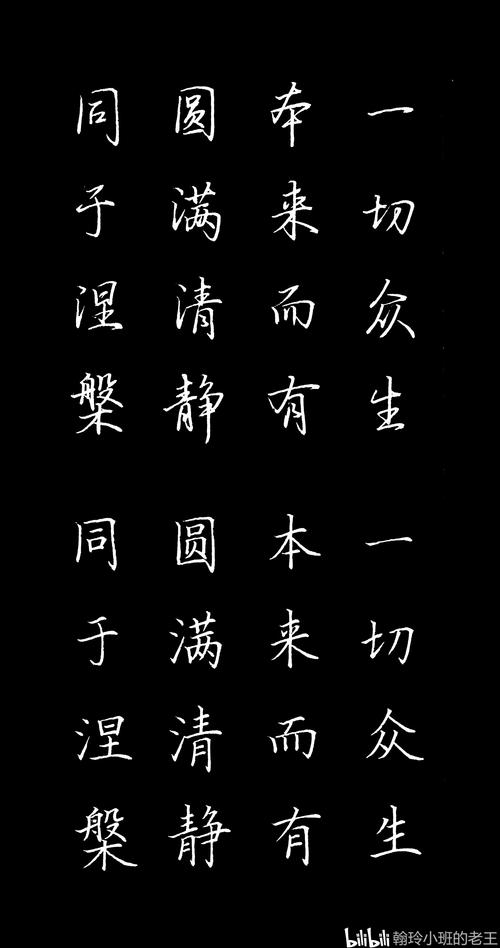 一切众生
本来而有
圆满清静
同于涅槃
一切众生
本来而有
圆满清静
同于涅槃
bilibili 翰玲小班的老王